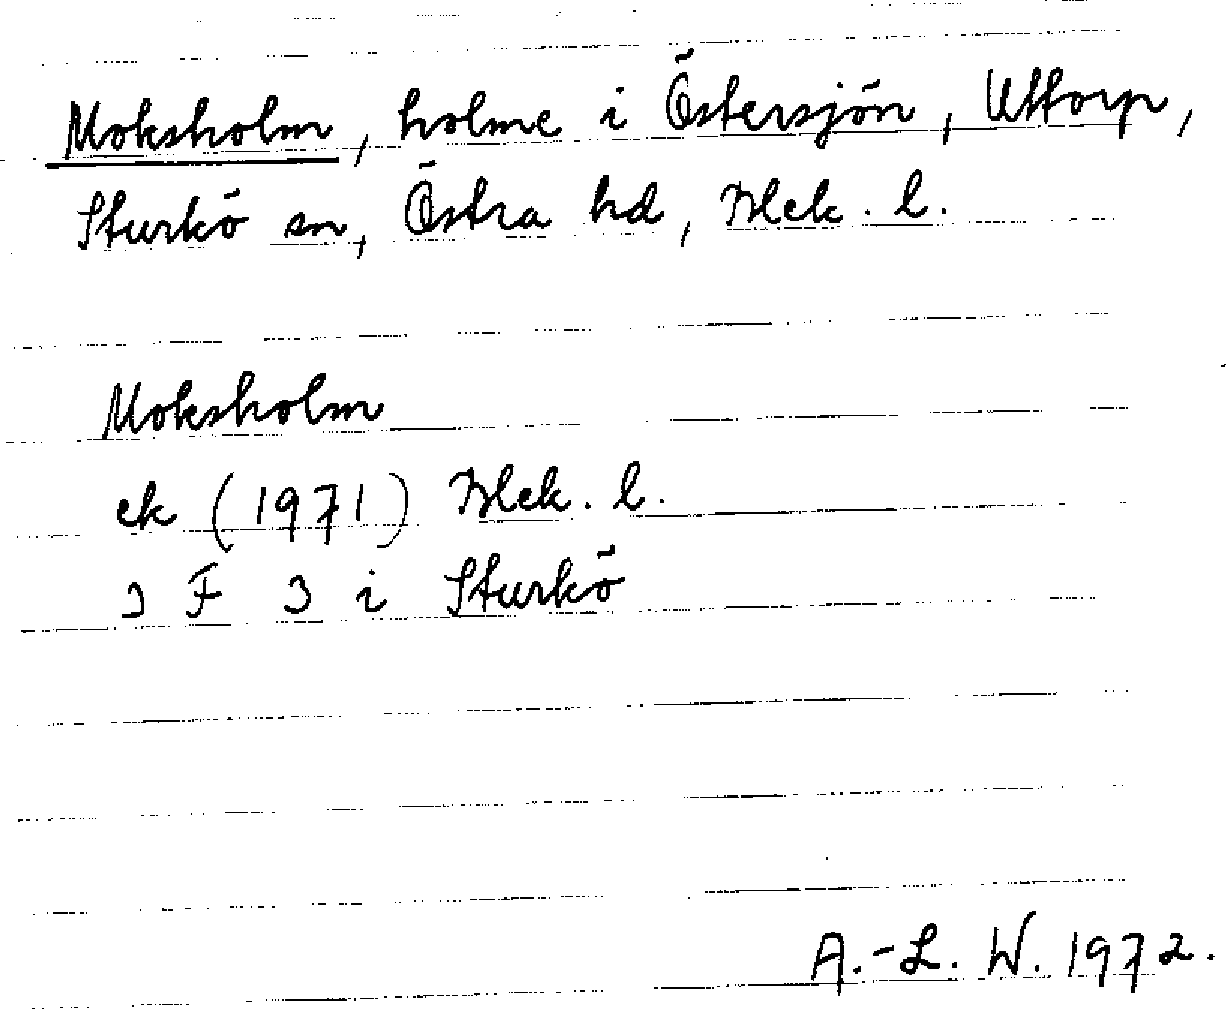 Moksholm, holme i Östersjön, Uttorp,
Sturkö sn, Östra hd, Blek. l.
Moksholm
ek (1971) Blek. l.
3 F 3 i Sturkö
A.-L. W. 1972.